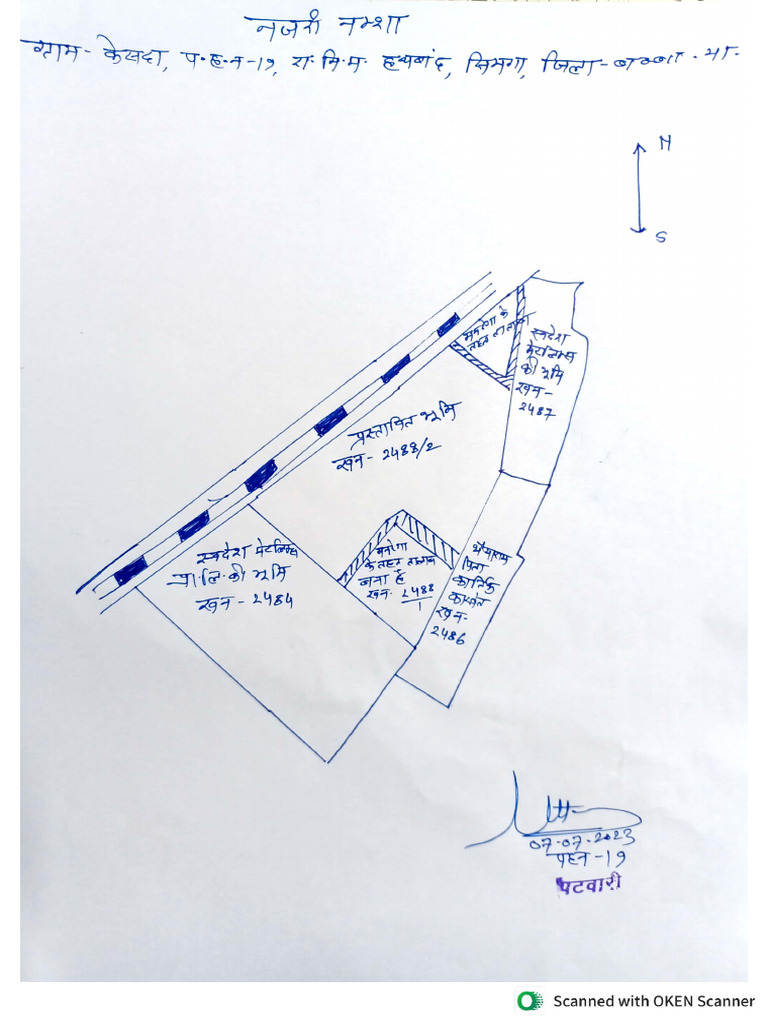 नजरी नक्शा
ग्राम - केसदा, प.ह.न - 19, रा.नि.म. हथबंद, सिमगा, जिला - ब.बा. - भा.
N
S
मनरेगा के
तहत तालाब
स्वदेश
मेटलिक्स
की भूमि
खन -
2487
प्रस्तावित भूमि
खन - 2488/2
स्वदेश मेटलिक्स
प्रा.लि. की भूमि
खन - 2484
मनरेगा
के तहत तालाब
बना है
खन. 2488/1
पिता
कार्तिक
खन -
2486
07.07.2023
पहन - 19
पटवारी
Scanned with OKEN Scanner